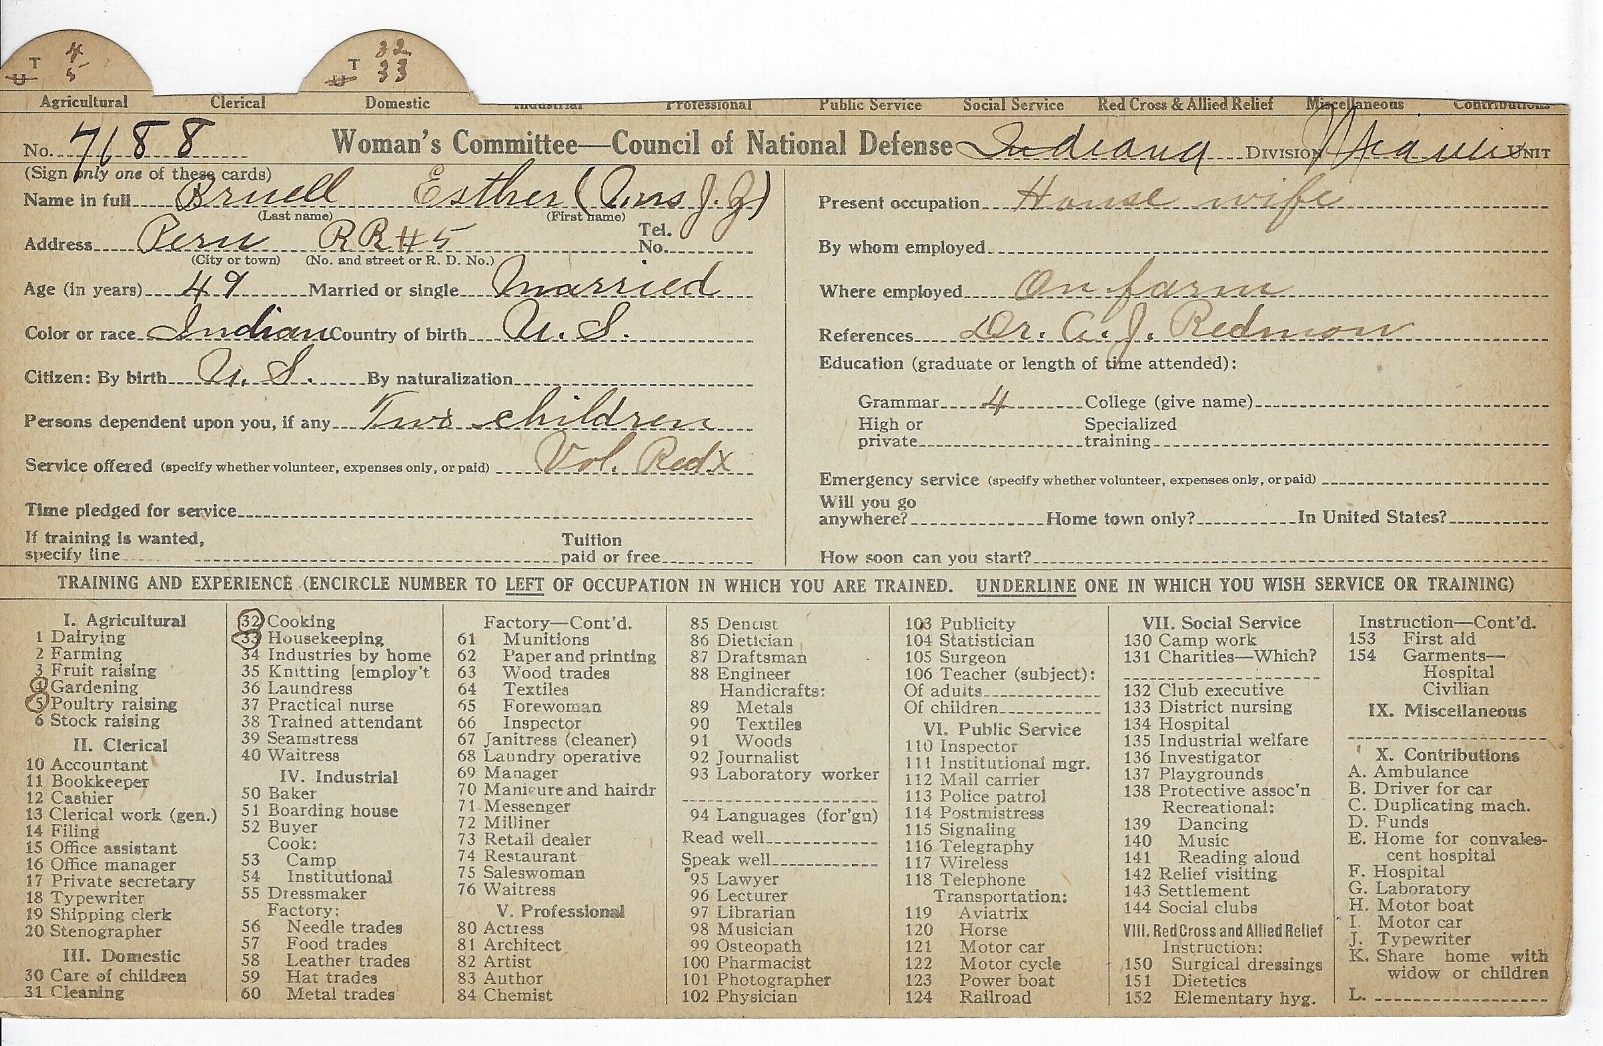 T 4 T 32
U 5 U 33
Agricultural Clerical Domestic Industrial Professional Public Service Social Service Red Cross & Allied Relief Miscellaneous Contributions
No. 7188 Woman's Committee—Council of National Defense Indiana DIVISION Miami UNIT
(Sign only one of these cards)
Name in full Bruell Esther (Mrs J. J)
(Last name) (First name)
Address Peru RR#5 Tel. No.
(City or town) (No. and street or R. D. No.)
Age (in years) 49 Married or single Married
Color or race Indian Country of birth U. S.
Citizen: By birth U. S. By naturalization
Persons dependent upon you, if any Two children
Service offered (specify whether volunteer, expenses only, or paid) Vol. Red x
Time pledged for service
If training is wanted, specify line Tuition paid or free
Present occupation House wife
By whom employed
Where employed On farm
References Dr. C. J. Redmon
Education (graduate or length of time attended):
Grammar 4 College (give name)
High or private Specialized training
Emergency service (specify whether volunteer, expenses only, or paid)
Will you go anywhere? Home town only? In United States?
How soon can you start?
TRAINING AND EXPERIENCE (ENCIRCLE NUMBER TO LEFT OF OCCUPATION IN WHICH YOU ARE TRAINED. UNDERLINE ONE IN WHICH YOU WISH SERVICE OR TRAINING)
I. Agricultural
1 Dairying
2 Farming
3 Fruit raising
4 Gardening
5 Poultry raising
6 Stock raising
II. Clerical
10 Accountant
11 Bookkeeper
12 Cashier
13 Clerical work (gen.)
14 Filing
15 Office assistant
16 Office manager
17 Private secretary
18 Typewriter
19 Shipping clerk
20 Stenographer
III. Domestic
30 Care of children
31 Cleaning
32 Cooking
33 Housekeeping
34 Industries by home
35 Knitting [employ't
36 Laundress
37 Practical nurse
38 Trained attendant
39 Seamstress
40 Waitress
IV. Industrial
50 Baker
51 Boarding house
52 Buyer
Cook:
53 Camp
54 Institutional
55 Dressmaker
Factory:
56 Needle trades
57 Food trades
58 Leather trades
59 Hat trades
60 Metal trades
Factory—Cont'd.
61 Munitions
62 Paper and printing
63 Wood trades
64 Textiles
65 Forewoman
66 Inspector
67 Janitress (cleaner)
68 Laundry operative
69 Manager
70 Manicure and hairdr
71 Messenger
72 Milliner
73 Retail dealer
74 Restaurant
75 Saleswoman
76 Waitress
V. Professional
80 Actress
81 Architect
82 Artist
83 Author
84 Chemist
85 Dentist
86 Dietician
87 Draftsman
88 Engineer
Handicrafts:
89 Metals
90 Textiles
91 Woods
92 Journalist
93 Laboratory worker
94 Languages (for'gn)
Read well
Speak well
95 Lawyer
96 Lecturer
97 Librarian
98 Musician
99 Osteopath
100 Pharmacist
101 Photographer
102 Physician
103 Publicity
104 Statistician
105 Surgeon
106 Teacher (subject):
Of adults
Of children
VI. Public Service
110 Inspector
111 Institutional mgr.
112 Mail carrier
113 Police patrol
114 Postmistress
115 Signaling
116 Telegraphy
117 Wireless
118 Telephone
Transportation:
119 Aviatrix
120 Horse
121 Motor car
122 Motor cycle
123 Power boat
124 Railroad
VII. Social Service
130 Camp work
131 Charities—Which?
132 Club executive
133 District nursing
134 Hospital
135 Industrial welfare
136 Investigator
137 Playgrounds
138 Protective assoc'n
Recreational:
139 Dancing
140 Music
141 Reading aloud
142 Relief visiting
143 Settlement
144 Social clubs
VIII. Red Cross and Allied Relief
Instruction:
150 Surgical dressings
151 Dietetics
152 Elementary hyg.
Instruction—Cont'd.
153 First aid
154 Garments—
Hospital
Civilian
IX. Miscellaneous
X. Contributions
A. Ambulance
B. Driver for car
C. Duplicating mach.
D. Funds
E. Home for convales-
cent hospital
F. Hospital
G. Laboratory
H. Motor boat
I. Motor car
J. Typewriter
K. Share home with
widow or children
L.